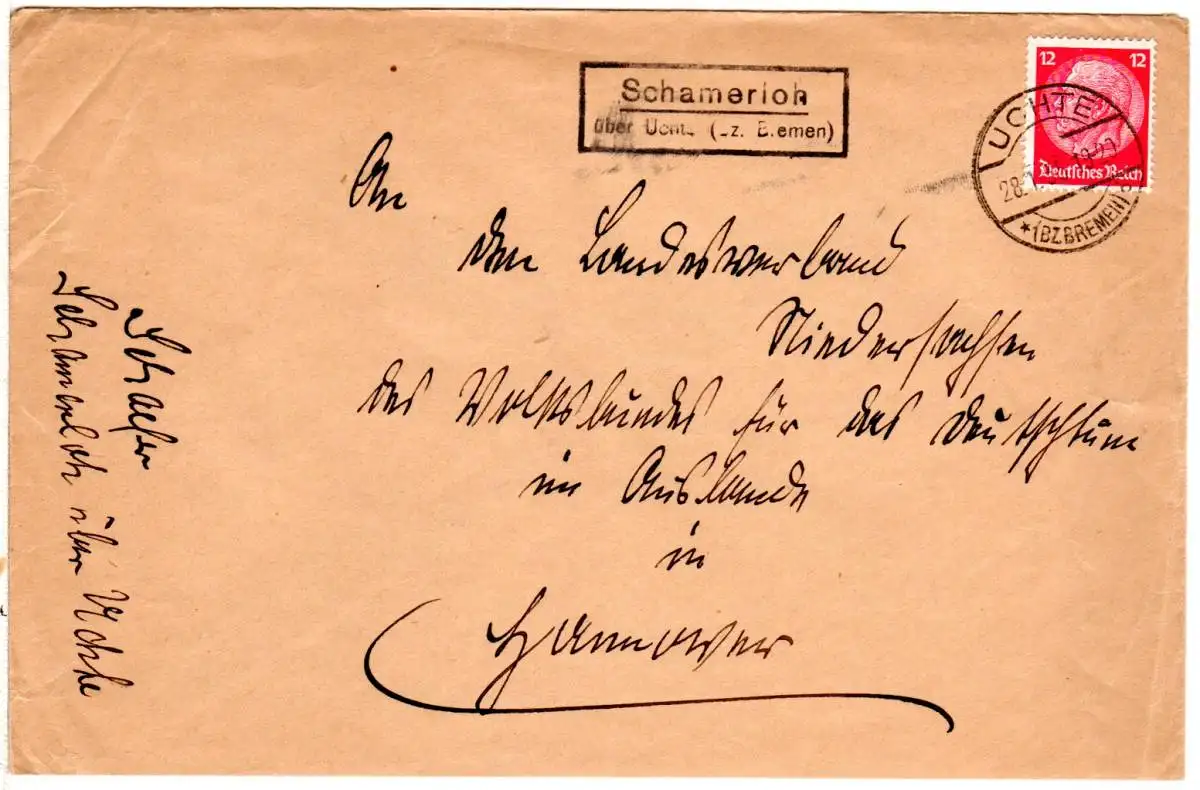 Schamerloh
über Uchte (Bz. Bremen)
12 12
Deutsches Reich
UCHTE
28.
*(BZ.BREMEN)
An
den Landesverband
Niedersachsen
des Volksbundes für das Deutschtum
im Auslande
in
Hannover
Schaefer
Schamerloh über Uchte